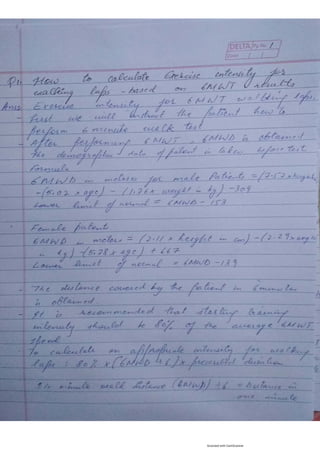 DELTA Pg No. 1
Date / /
Q1. How to calculate Exercise intensity for
walking laps - based on 6MWT results
Ans: Exercise intensity for 6MWT walking laps.
- First we will instruct the patient how to
perform 6 minute walk test
- After performing 6MWT, 6MWD is obtained
The demographic data of patient is taken before test
Formula
6MWD in meters for male Patients = (7.57 x height
- (5.02 x age) - (1.76 x weight in kg) - 309
Lower limit of normal = 6MWD - 153
Female patient
6MWD in meters = (2.11 x height in cm) - (2.29 x weight
in kg) - (5.78 x age) + 667
Lower limit of normal = 6MWD - 139
- The distance covered by the patient in 6 minutes
is obtained
- It is recommended that starting training
intensity should be 80% of the average 6MWT
speed.
To calculate an appropriate intensity for walking
laps : 80% x (6MWD ÷ 6) x prescribed duration
Six minute walk distance (6MWD) ÷ 6 = Distance in
one minute
Scanned with CamScanner